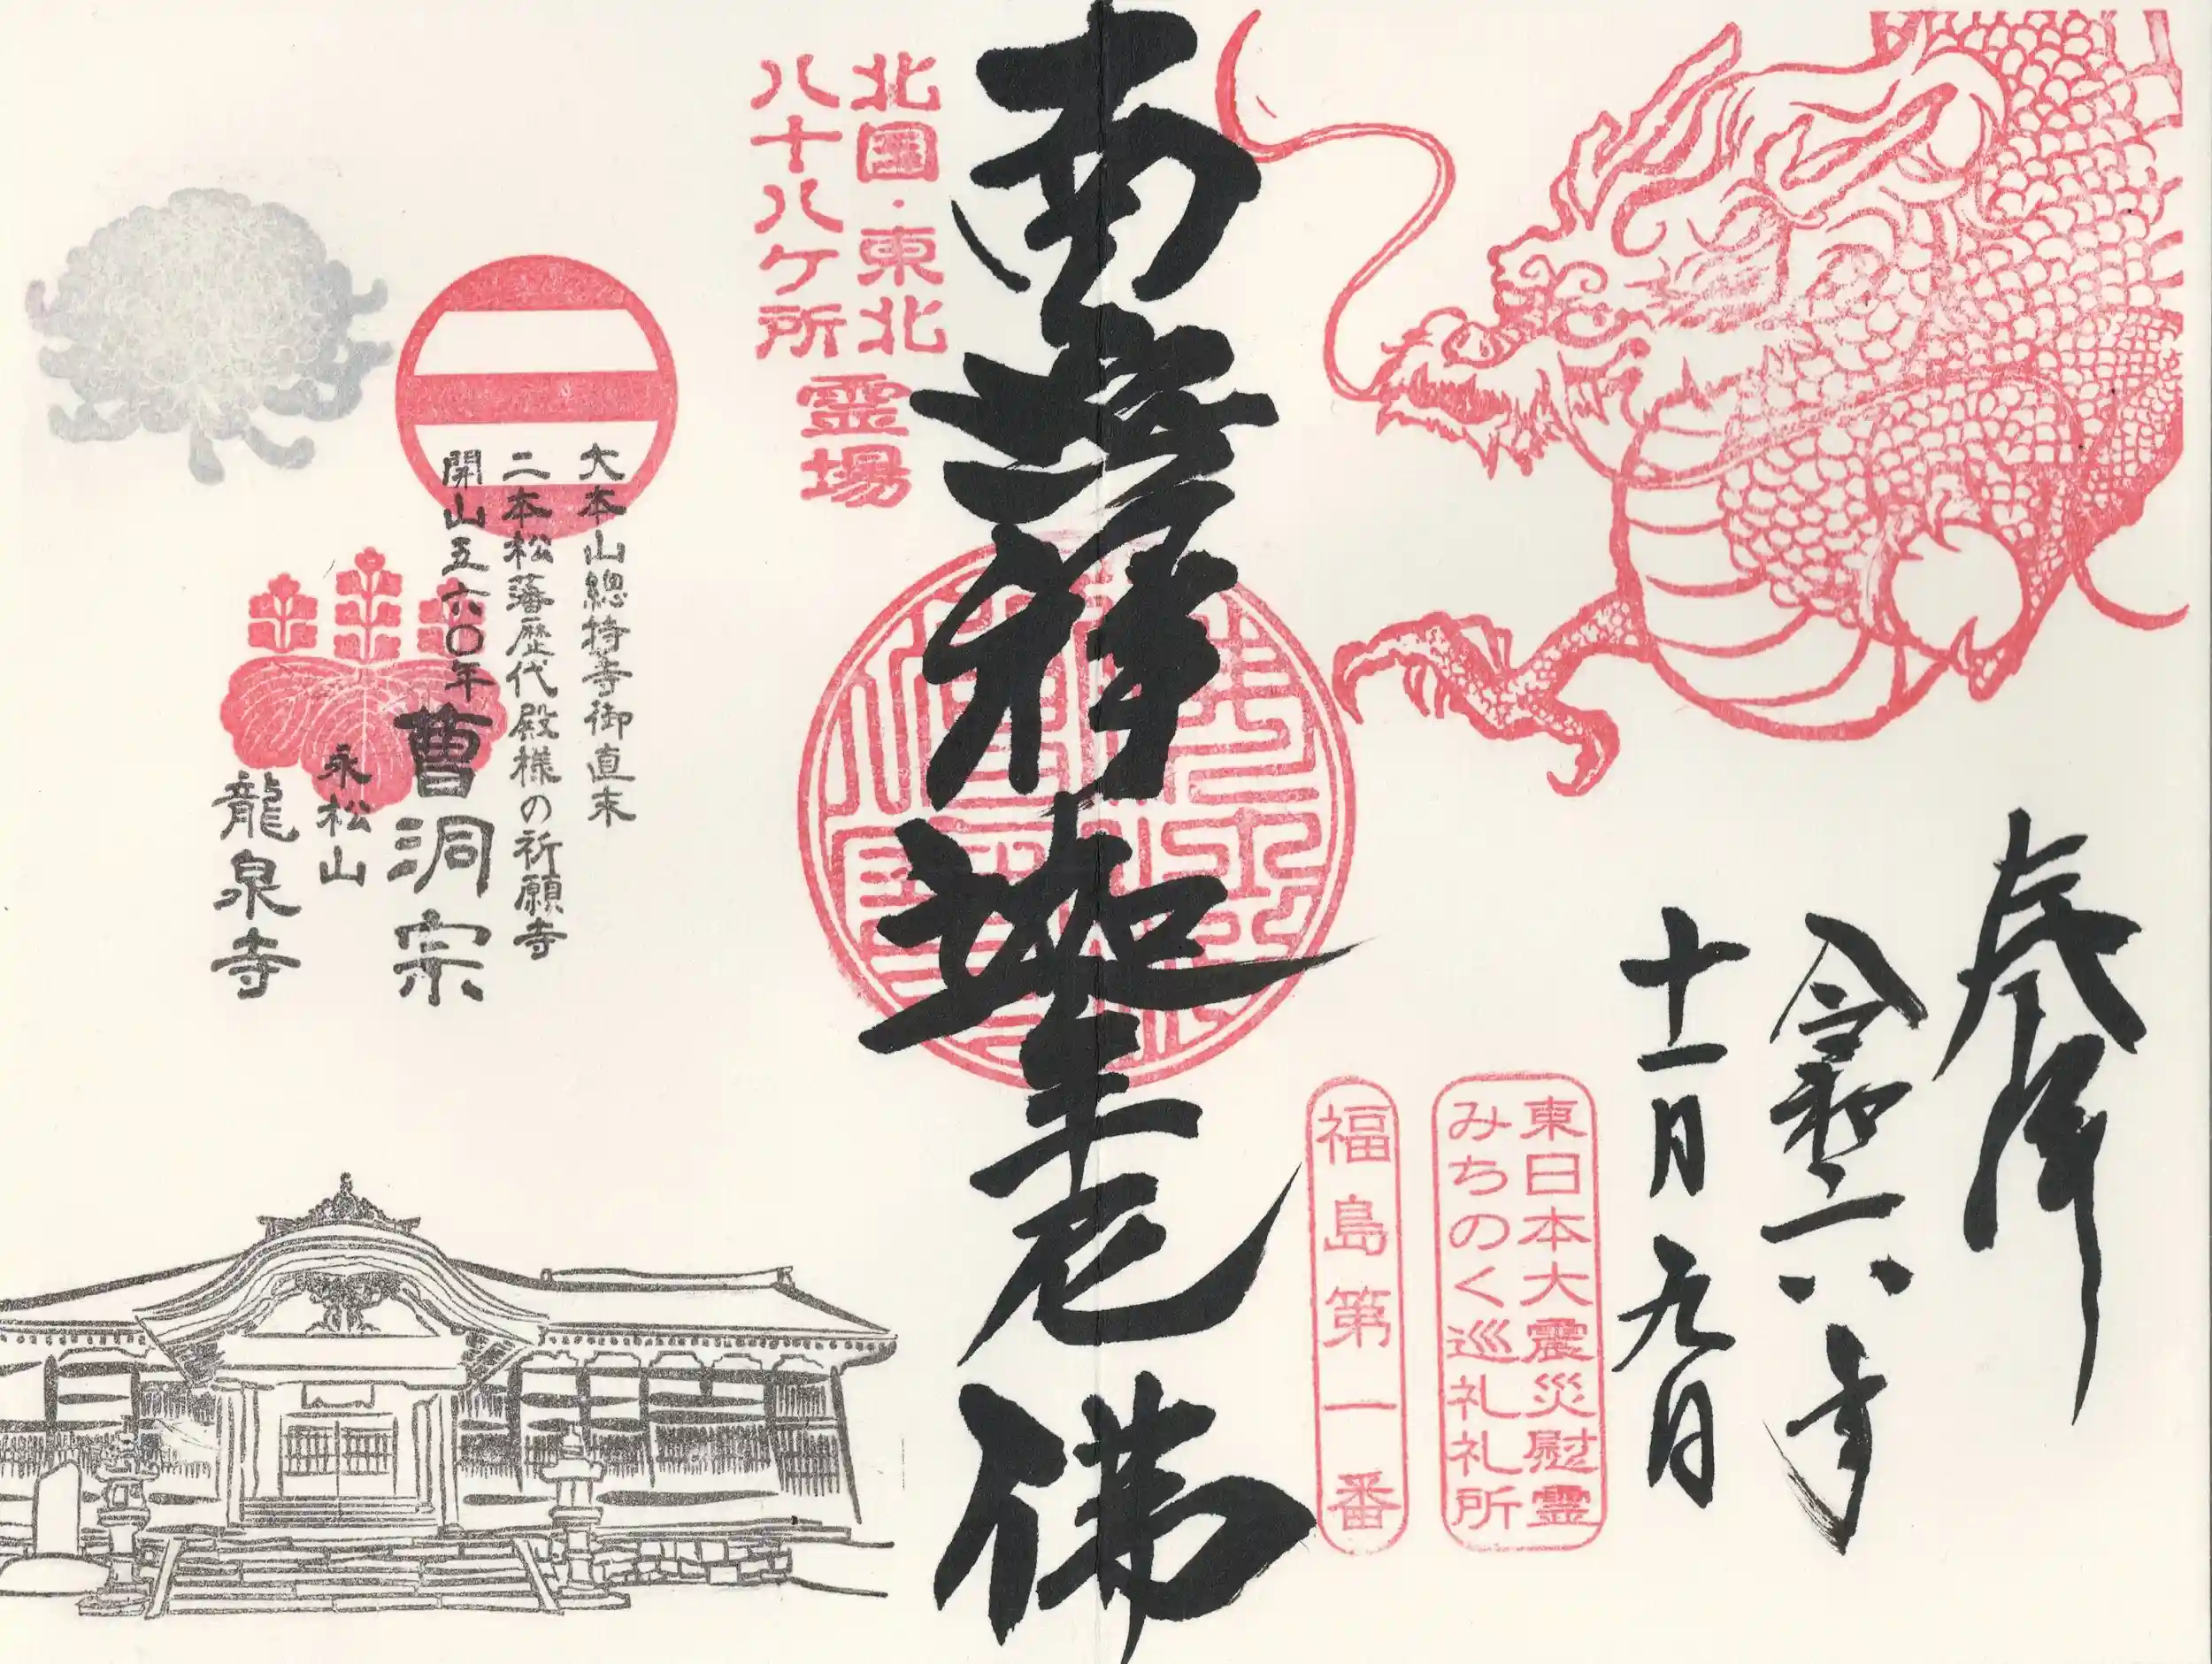 奉拝
令和六年
十一月九日
東日本大震災慰霊
みちのく巡礼礼所
福島第一番
南無釋迦牟尼佛
北国・東北
八十八ケ所
霊場
大本山總持寺御直末
二本松藩歴代殿様の祈願寺
開山五六〇年
曹洞宗
永松山
龍泉寺